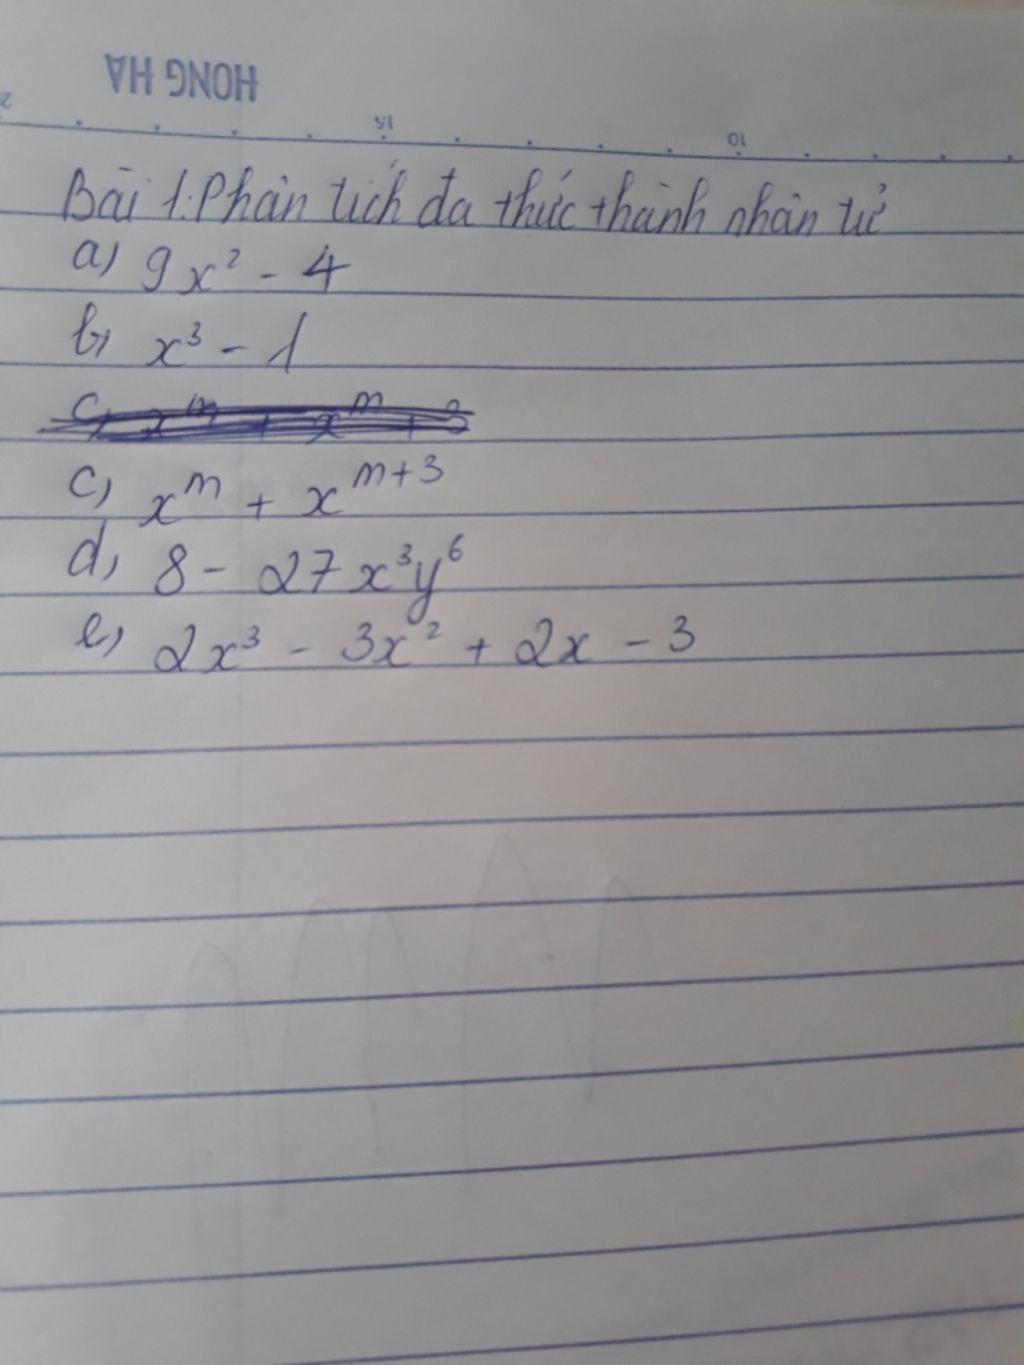 HONG HA
15 10
Bài 1: Phân tích đa thức thành nhân tử
a) 9x² - 4
b) x³ - 1
c) x^m + x^m + 3
c) x^m + x^{m+3}
d) 8 - 27x³y⁶
e) 2x³ - 3x² + 2x - 3